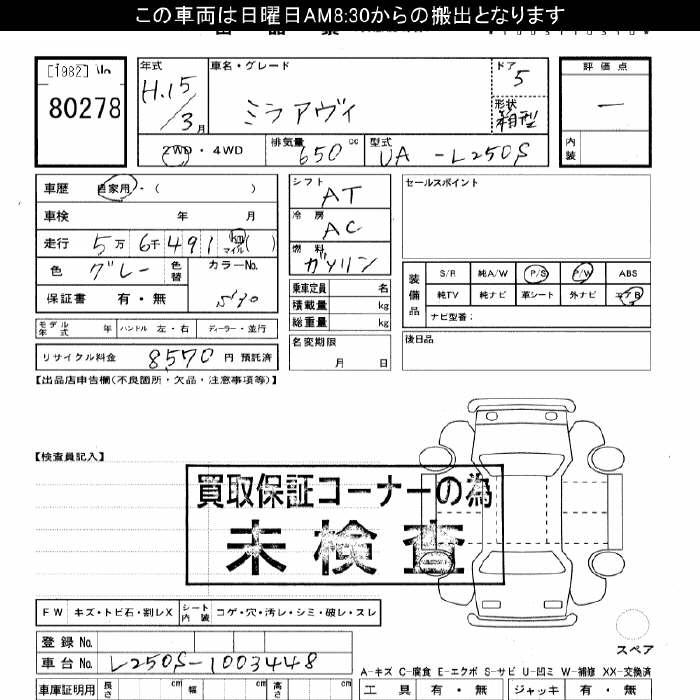 この車両は日曜日AM8:30からの搬出となります
[1982]
80278
年式
H.15/3月
車名・グレード
ミラアヴィ
ドア
5
形状
箱型
評価点
—
内装
2WD・4WD
排気量
650cc
型式
UA-L250S
車歴 自家用・( )
車検 年 月
走行 5万6千491 km マイル ( )
色 グレー 色替
カラーNo.
保証書 有・無
シフト
AT
冷房
AC
燃料
ガソリン
乗車定員 名
積載量 kg
総重量 kg
セールスポイント
装備品
S/R 純A/W P/S P/W ABS
純TV 純ナビ 革シート 外ナビ エアB
ナビ型番:
モデル年式 年 ハンドル 左・右 ディーラー・並行
リサイクル料金 8570 円 預託済
名変期限
月 日
後日品
【出品店申告欄(不良箇所・欠品・注意事項等)】
【検査員記入】
買取保証コーナーの為
未検査
FW キズ・トビ石・割レX シート内装 コゲ・穴・汚レ・シミ・破レ・スレ
スペア
登録No.
車台No. L250S-1003448
A-キズ C-腐食 E-エクボ S-サビ U-凹ミ W-補修 XX-交換済
車庫証明用 長さ cm 幅 cm 高さ cm
工具 有・無 ジャッキ 有・無